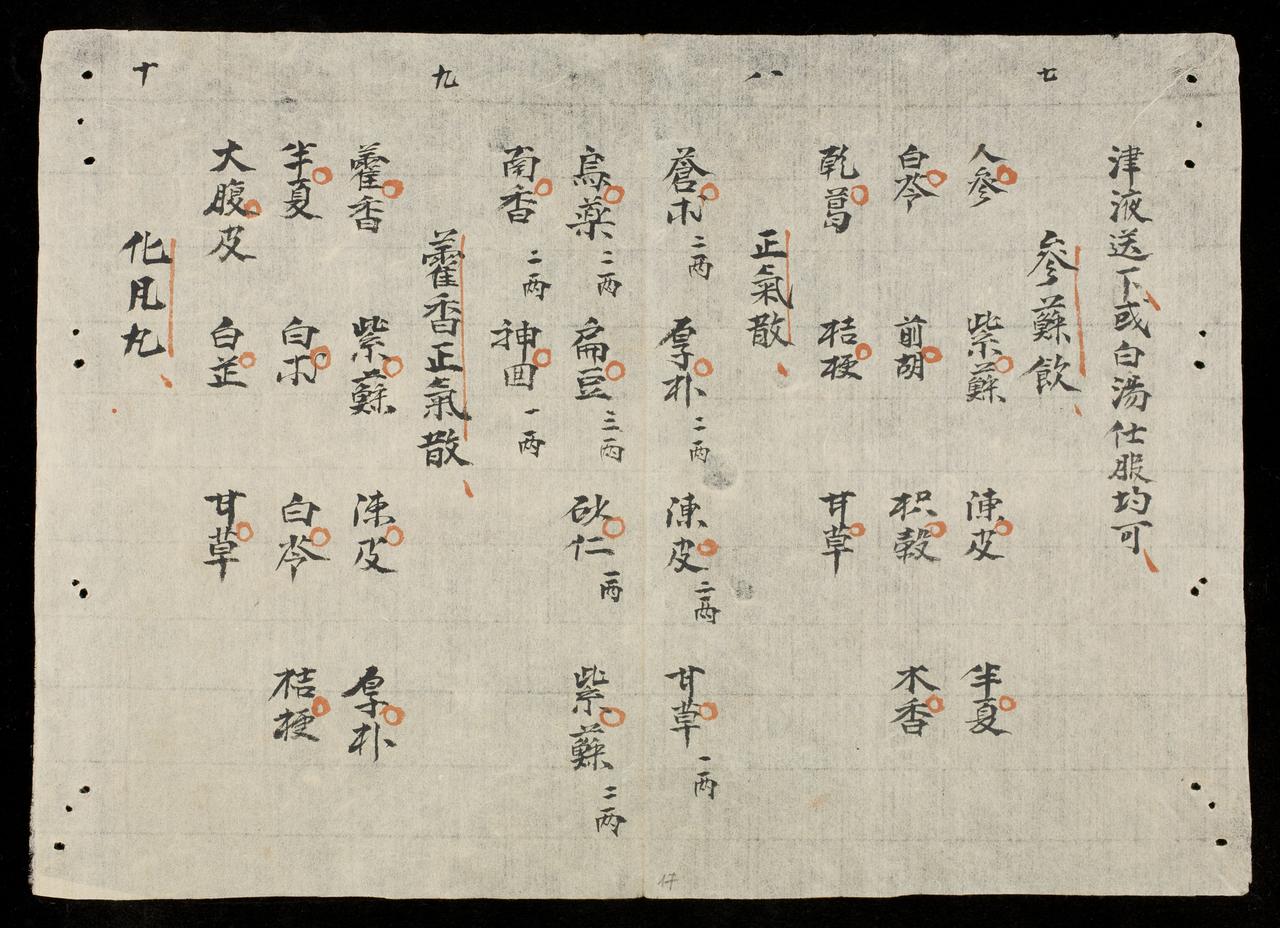 津液送下或白湯仕服均可
七
參蘇飲
人參 紫蘇 陳皮 半夏
白苓 前胡 枳殼 木香
乾葛 桔梗 甘草
八
正氣散
蒼朮二兩 厚朴二兩 陳皮二兩 甘草一兩
烏藥二兩 扁豆三兩 砂仁一兩 紫蘇二兩
南香二兩 神曲一兩
九
藿香正氣散
藿香 紫蘇 陳皮 厚朴
半夏 白朮 白苓 桔梗
大腹皮 白芷 甘草
十
化凡丸
17